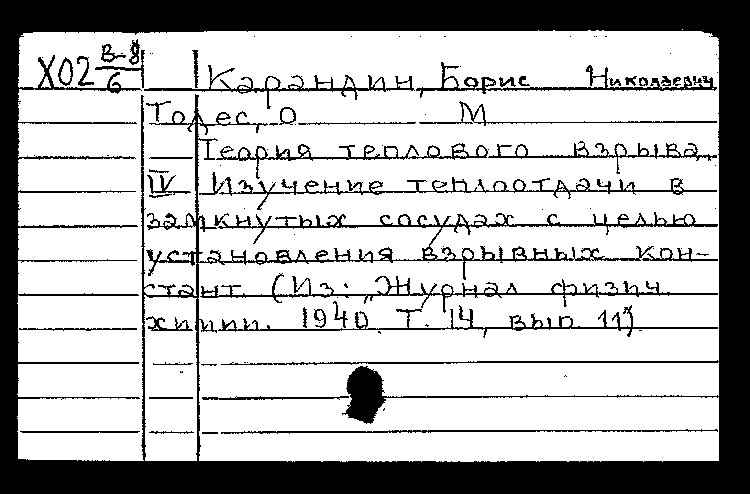 Х02 В-8/6 Карандин, Борис Николаевич
Тодес, О М
Теория теплового взрыва.
IV Изучение теплоотдачи в
замкнутых сосудах с целью
установления взрывных кон-
стант. (Из: „Журнал физич.
химии. 1940. Т. 14, вып. 11")